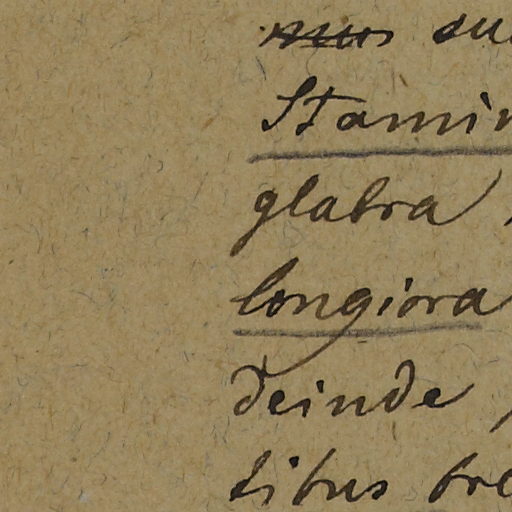 su
Stamin
glabra,
longiora
deinde,
tibus bre